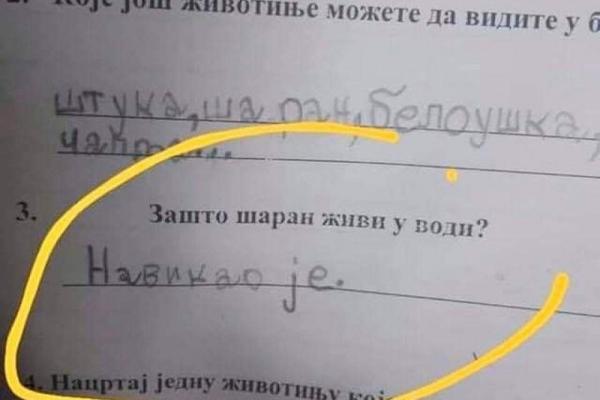 2. Које још животиње можете да видите у б
штука, шаран, белоушка,
чапља...
3. Зашто шаран живи у води?
Навикао је.
4. Нацртај једну животињу кој